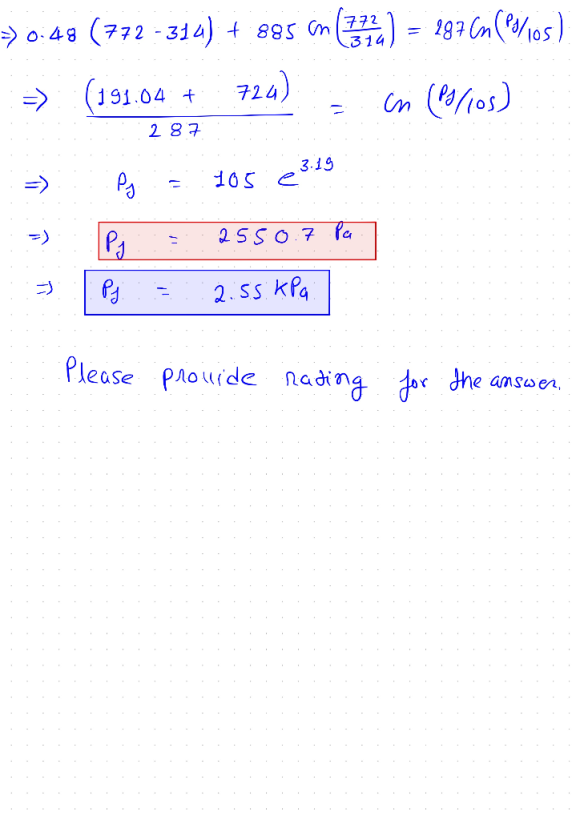 ⇒ 0.48 (772 - 314) + 885 ln(772/314) = 287 ln(Pf/105)
⇒ (191.04 + 724)/287 = ln (Pf/105)
⇒ Pf = 105 e^3.19
⇒ Pf = 2550.7 Pa
⇒ Pf = 2.55 KPa
Please provide rating for the answer.